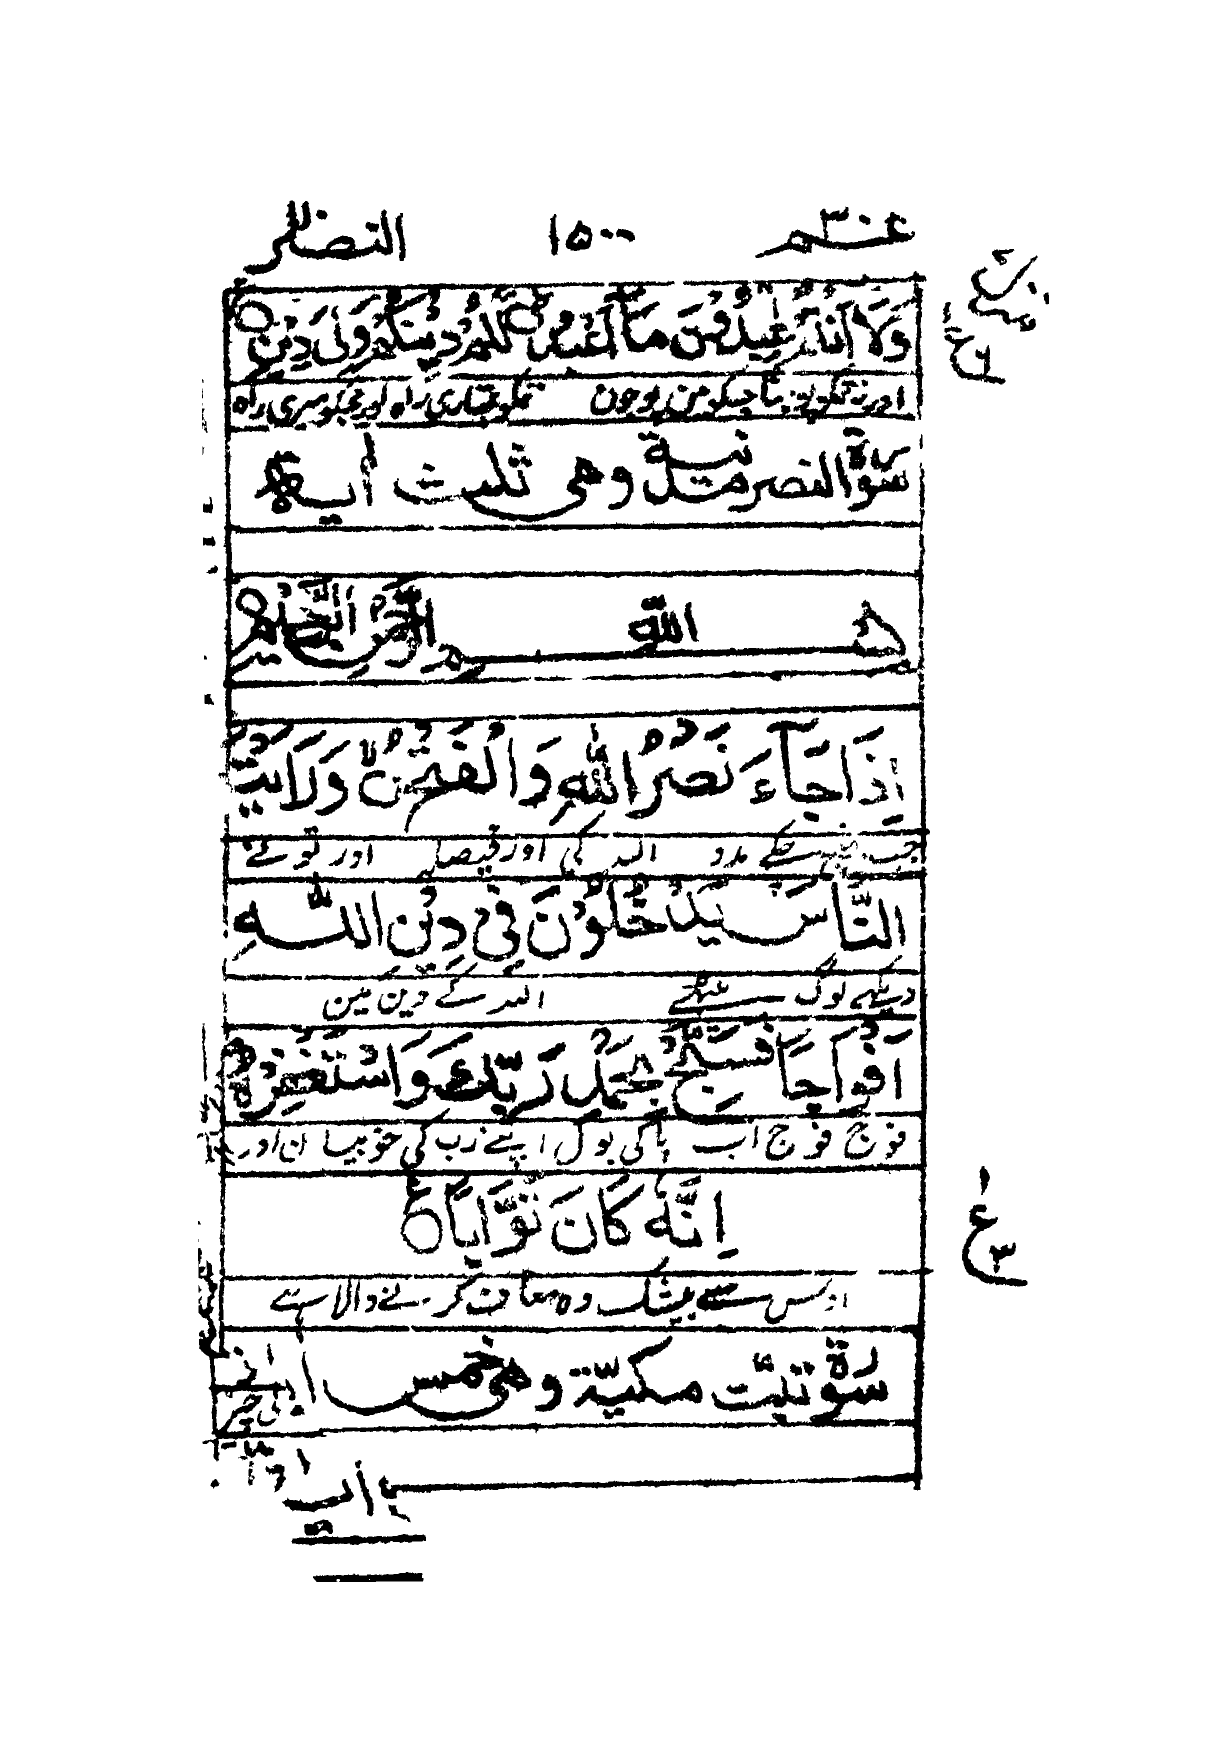 عم ٣٠ ١٥٠٠ النصر
وَلَا أَنْتُمْ عٰبِدُوْنَ مَآ أَعْبُدُ لَكُمْ دِيْنُكُمْ وَلِيَ دِيْنِ
اور نہ تمکو پوجنا جسکو مین پوجون تمکو تمہاری راہ اور مجکو میری راہ
سورة النصر مدنية وهي ثلث أية
بسم الله الرحمن الرحيم
اِذَا جَآءَ نَصْرُ اللّٰهِ وَالْفَتْحُ وَرَاَيْتَ
جب مدد اللہ کی اور فیصلہ اور تونے
النَّاسَ يَدْخُلُوْنَ فِيْ دِيْنِ اللّٰهِ
دیکھے لوگ بیٹھتے اللہ کے دین مین
اَفْوَاجًا فَسَبِّحْ بِحَمْدِ رَبِّكَ وَاسْتَغْفِرْهُ
فوج فوج اب پاکی بول اپنے رب کی خوبیان اور
اِنَّهٗ كَانَ تَوَّابًا
اوس سے بیشک وہ معاف کرنے والا ہے
ع ٣
سورة تبّت مكيّة وهي خمس